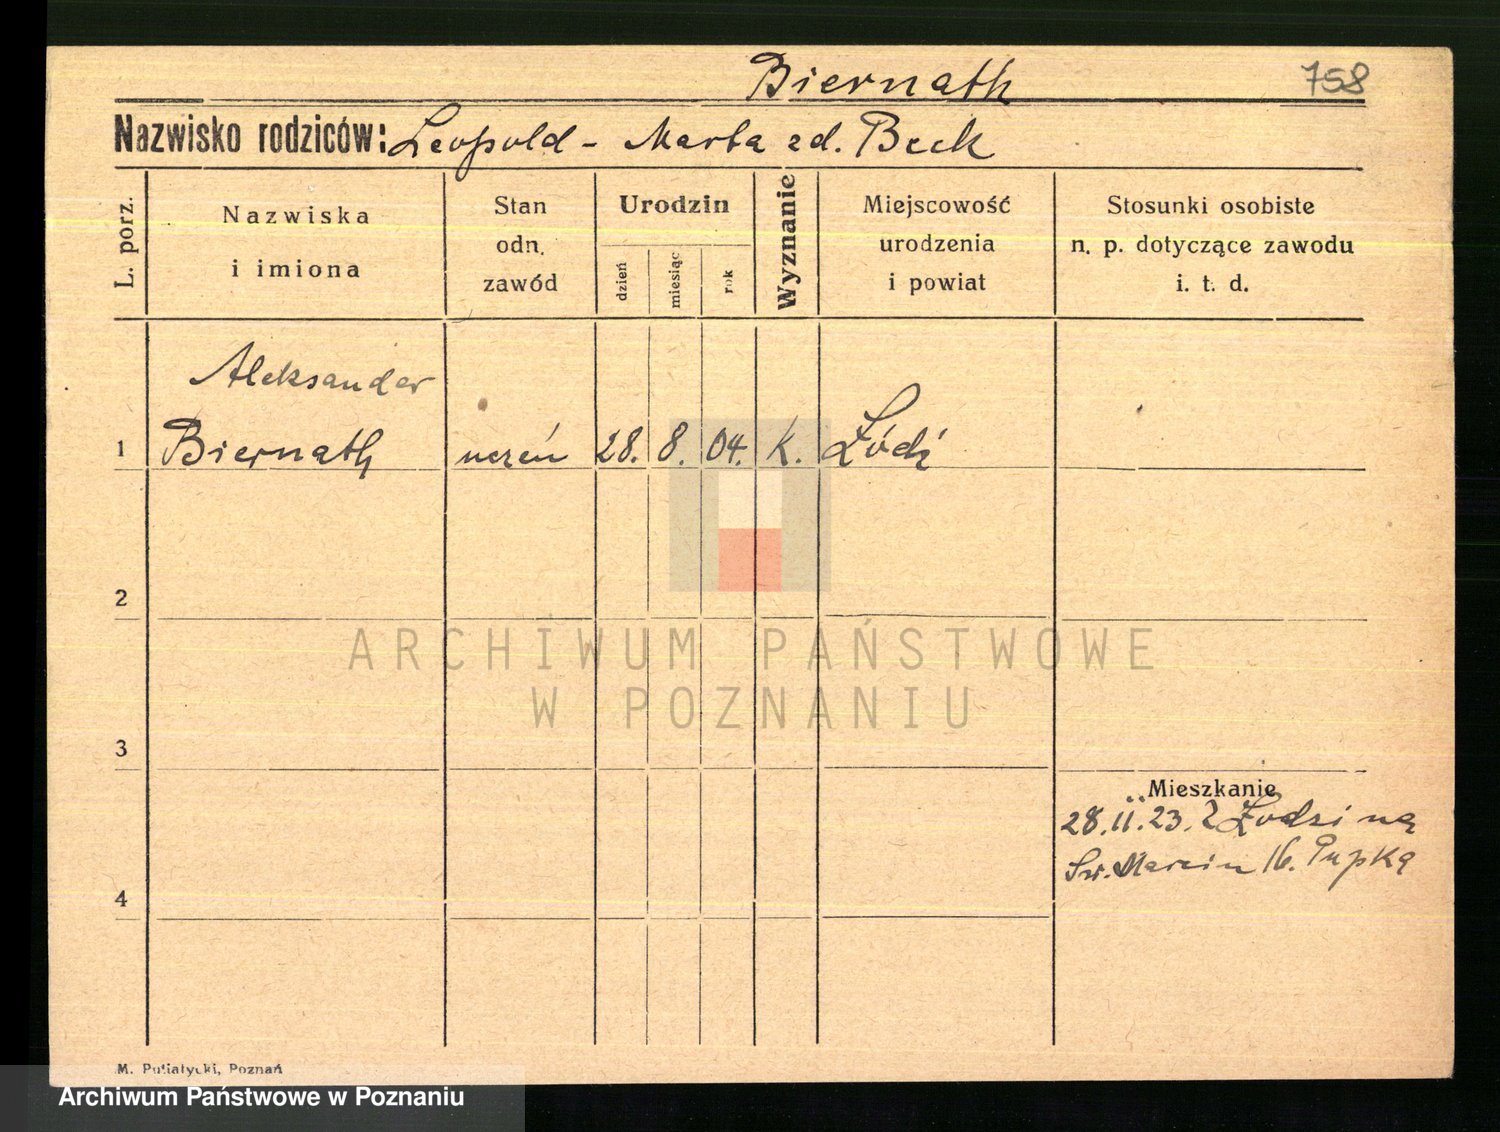 Biernath
758
Nazwisko rodziców: Leopold - Marta zd. Beck
L. porz.
Nazwiska
i imiona
Stan
odn.
zawód
Urodzin
dzień
miesiąc
rok
Wyznanie
Miejscowość
urodzenia
i powiat
Stosunki osobiste
n. p. dotyczące zawodu
i. t. d.
Aleksander
1 Biernath uczeń 28. 8. 04. K. Łódź
2
3
Mieszkanie
28.II.23. z Łodzi na
Św. Marcin 16.
4
M. Putiatycki, Poznań
ARCHIWUM PAŃSTWOWE
W POZNANIU
Archiwum Państwowe w Poznaniu